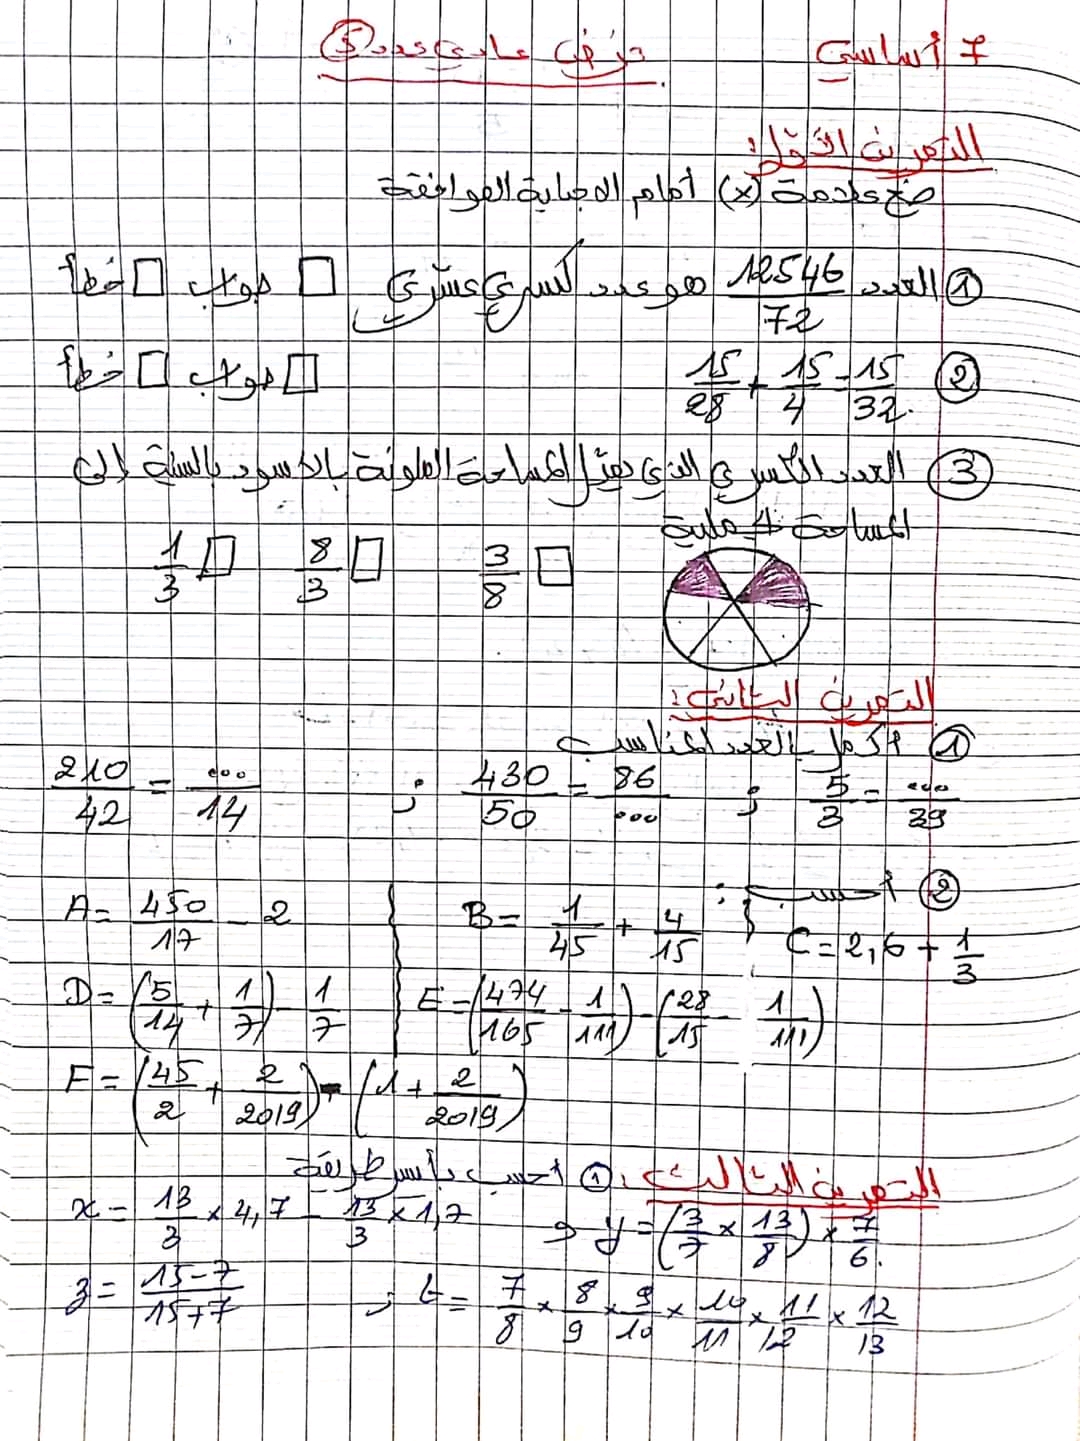 7 أساسي
فرض عادي عدد 5
التمرين الأول:
ضع علامة (x) أمام الاجابة الموافقة
① العدد 12546/72 هو عدد كسري عشري □ صواب □ خطأ
② 15/28 + 15/4 = 15/32 □ صواب □ خطأ
③ العدد الكسري الذي يمثل المساحة الملونة بالاسود بالنسبة إلى
المساحة الجملية
□ 3/8 □ 8/3 □ 1/3
التمرين الثاني:
① أكمل بالعدد المناسب
5/3 = .../39 ; 430/50 = 86/... ; 210/42 = .../14
② أحسب:
A = 450/17 - 2 B = 1/45 + 4/15 C = 2,6 + 1/3
D = (5/14 + 1/7) - 1/7 E = (474/165 - 1/111) - (28/15 - 1/111)
F = (45/2 + 2/2019) - (1 + 2/2019)
التمرين الثالث: ① أحسب بأيسر طريقة
x = 13/3 × 4,7 - 13/3 × 1,7 و y = (3/7 × 13/8) × 7/6
z = 15-7/15+7 ; t = 7/8 × 8/9 × 9/10 × 10/11 × 11/12 × 12/13